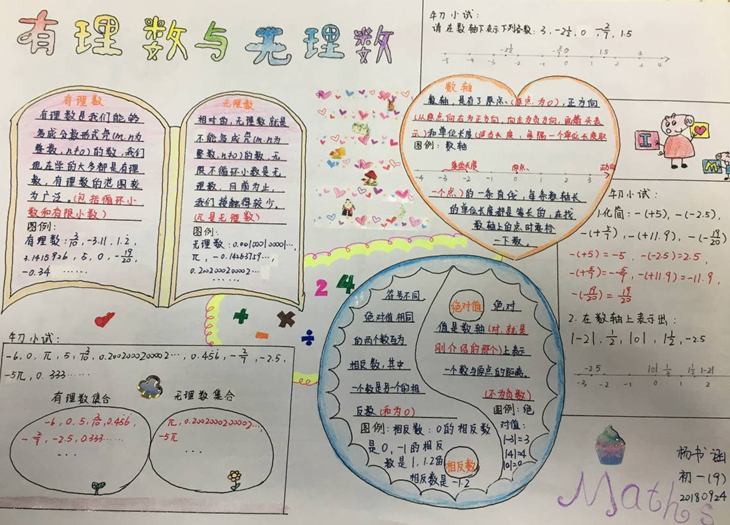 有理数与无理数
有理数
有理数是我们能够
写成分数形式
整数,n≠0)的数,我们
现在学的大多都是有理
数,有理数的范围较
为广泛。(包括循环小
数和有限小数)
图例:
有理数:3/10,-3.11,1.2,
3.1415926,5,0,-19/20,
-0.34 ……
无理数
相对的,无理数就是
不能写成
整数,n≠0)的数,无
限不循环小数是无
理数,目前为止,
我们接触得较少。
图例:
无理数:0.001000100001…,
0.202002000 2…
数轴
数轴,是有了原点(原点为0),正方向
图例:数轴
单位长度 原点
-4 -3 -2 -1 0 1 2 3
的一条直线,每条数轴长
的单位长度都是等长的,在找
数轴上的点时要标
一下数。
牛刀小试:
请在数轴下表示下列各数:3,-2 1/2,0,-2/7,1.5
-5 -4 -3 -2 -1 0 1 2 3 4 5
牛刀小试:
1.化简:-(+5),-(-2.5),
-(+11.9),-(-19/20)
-(+5)=-5 -(-2.5)=2.5,
-(+11.9)=-11.9,
-(-19/20)=19/20
2.在数轴上表示出:
|-2|,1/2,|0|,1 1/2,-2.5
-2.5 |0| 1/2 1 1/2 |-2|
-3 -2 -1 0 1 2
24
+ × - ÷
牛刀小试:
-6,0,π,5,3/10,0.202002000 2…,0.456,-2/7,-2.5,
-5π,0.333……
有理数集合
-6,0,5,3/10,0.456,
-2/7,-2.5,0.333……
…
无理数集合
π,0.202002000 2…,
-5π
…
符号不同
绝对值相同
的两个数互为
相反数,其中
一个数是另一个相
反数(和为0)
图例:相反数:0的相反数
是0,-1的相反
数是1,1.2的
相反数是-1.2
相反数
绝对值
绝对
值是数轴
上表示
一个数与原点的距离。
(不为负数)
图例:绝
对值:
|-3|=3
|4|=4
|0|=0
I M
Maths
初一(9)
20180924